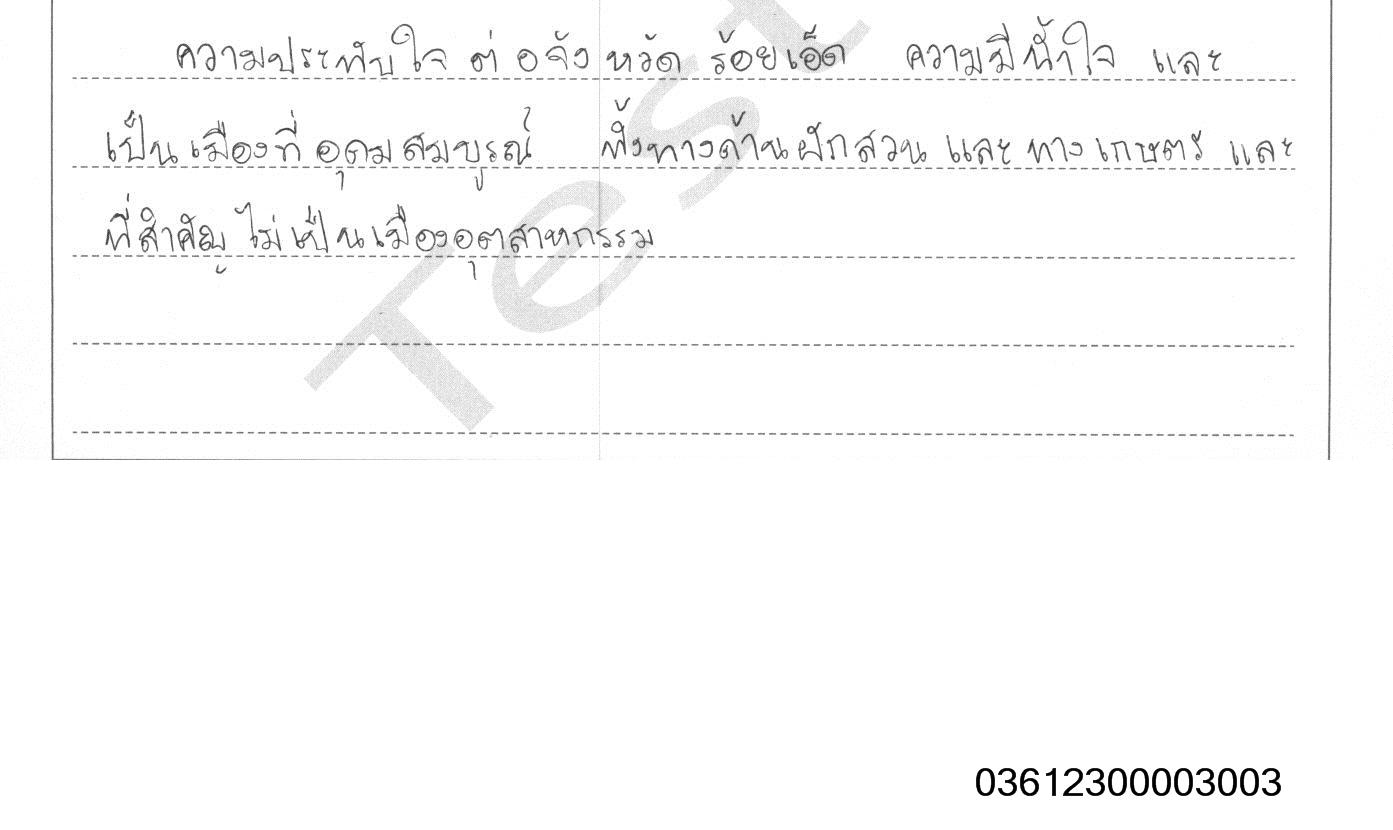 ความประทับใจ ต่อจังหวัด ร้อยเอ็ด ความมีน้ำใจ และ
เป็นเมืองที่ อุดมสมบูรณ์ ทั้งทางด้านผักสวน และ ทาง เกษตร และ
ที่สำคัญ ไม่เป็นเมืองอุตสาหกรรม
Test
03612300003003